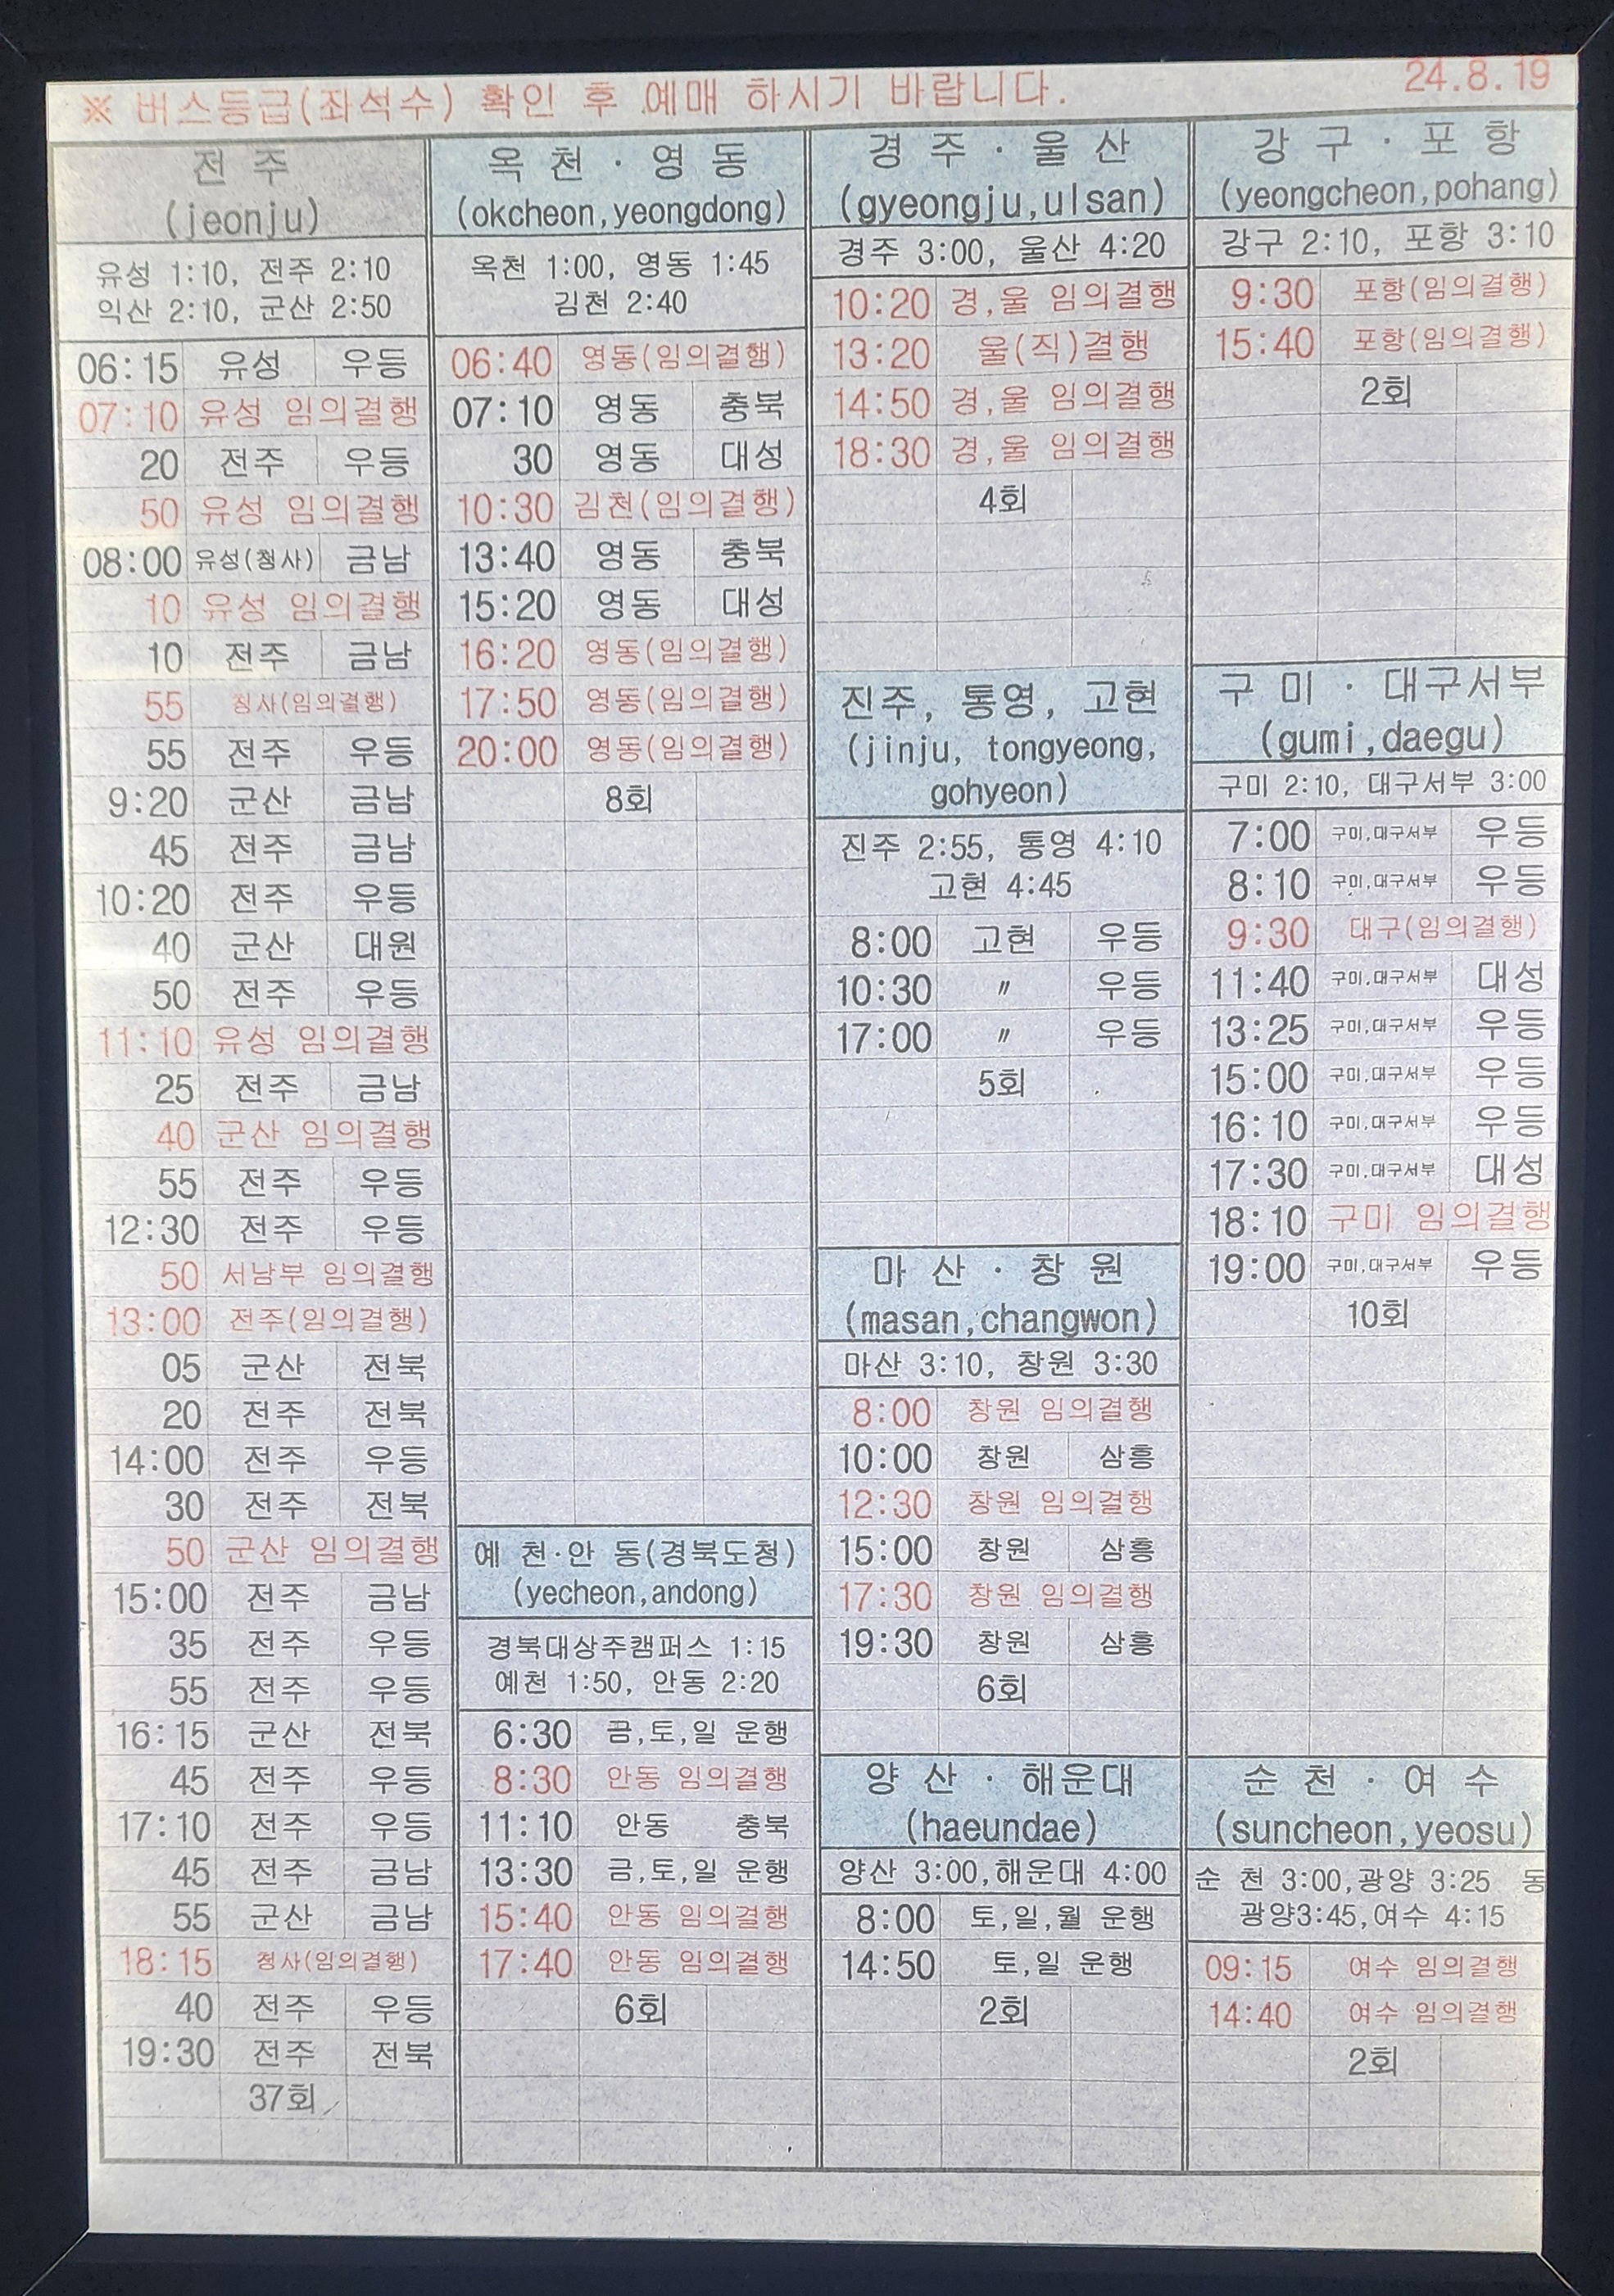 ※ 버스등급(좌석수) 확인 후 예매 하시기 바랍니다.
24.8.19
전 주
(jeonju)
유성 1:10, 전주 2:10
익산 2:10, 군산 2:50
06:15 유성 우등
07:10 유성 임의결행
20 전주 우등
50 유성 임의결행
08:00 유성(청사) 금남
10 유성 임의결행
10 전주 금남
55 청사(임의결행)
55 전주 우등
9:20 군산 금남
45 전주 금남
10:20 전주 우등
40 군산 대원
50 전주 우등
11:10 유성 임의결행
25 전주 금남
40 군산 임의결행
55 전주 우등
12:30 전주 우등
50 서남부 임의결행
13:00 전주(임의결행)
05 군산 전북
20 전주 전북
14:00 전주 우등
30 전주 전북
50 군산 임의결행
15:00 전주 금남
35 전주 우등
55 전주 우등
16:15 군산 전북
45 전주 우등
17:10 전주 우등
45 전주 금남
55 군산 금남
18:15 청사(임의결행)
40 전주 우등
19:30 전주 전북
37회
옥 천 · 영 동
(okcheon,yeongdong)
옥천 1:00, 영동 1:45
김천 2:40
06:40 영동(임의결행)
07:10 영동 충북
30 영동 대성
10:30 김천(임의결행)
13:40 영동 충북
15:20 영동 대성
16:20 영동(임의결행)
17:50 영동(임의결행)
20:00 영동(임의결행)
8회
예 천·안 동(경북도청)
(yecheon,andong)
경북대상주캠퍼스 1:15
예천 1:50, 안동 2:20
6:30 금,토,일 운행
8:30 안동 임의결행
11:10 안동 충북
13:30 금,토,일 운행
15:40 안동 임의결행
17:40 안동 임의결행
6회
경 주 · 울 산
(gyeongju,ulsan)
경주 3:00, 울산 4:20
10:20 경,울 임의결행
13:20 울(직)결행
14:50 경,울 임의결행
18:30 경,울 임의결행
4회
진주, 통영, 고현
(jinju, tongyeong,
gohyeon)
진주 2:55, 통영 4:10
고현 4:45
8:00 고현 우등
10:30 〃 우등
17:00 〃 우등
5회
마 산 · 창 원
(masan,changwon)
마산 3:10, 창원 3:30
8:00 창원 임의결행
10:00 창원 삼흥
12:30 창원 임의결행
15:00 창원 삼흥
17:30 창원 임의결행
19:30 창원 삼흥
6회
양 산 · 해운대
(haeundae)
양산 3:00,해운대 4:00
8:00 토,일,월 운행
14:50 토,일 운행
2회
강 구 · 포 항
(yeongcheon,pohang)
강구 2:10, 포항 3:10
9:30 포항(임의결행)
15:40 포항(임의결행)
2회
구 미 · 대구서부
(gumi,daegu)
구미 2:10, 대구서부 3:00
7:00 구미,대구서부 우등
8:10 구미,대구서부 우등
9:30 대구(임의결행)
11:40 구미,대구서부 대성
13:25 구미,대구서부 우등
15:00 구미,대구서부 우등
16:10 구미,대구서부 우등
17:30 구미,대구서부 대성
18:10 구미 임의결행
19:00 구미,대구서부 우등
10회
순 천 · 여 수
(suncheon,yeosu)
순 천 3:00,광양 3:25 동
광양3:45,여수 4:15
09:15 여수 임의결행
14:40 여수 임의결행
2회